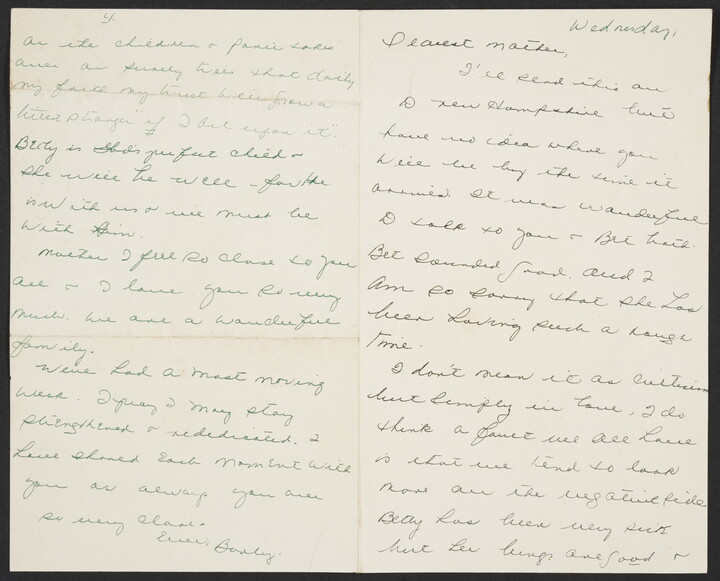 Wednesday,
Dearest Mother,
I'll send this on
to New Hampshire but
have no idea where you
will be by the time it
arrives. It was wonderful
to talk to you & Bet both.
Bet sounded good. And I
am so sorry that she has
been having such a rough
time.
I don't mean it as criticism
but simply in love, I do
think a fault we all have
is that we tend to look
more on the negative side
Betty has been very sick
but her lungs are good &
4.
on the children & panic takes
over or surely
my faith my trust
stronger if I act upon it".
Betty is God's perfect child &
she will be well - for He
is with us & we must be
with Him.
Mother I feel so close to you
all & I love you so very
much. We are a wonderful
family.
We've had a most moving
week. I pray I may stay
strengthened & rededicated. I
have shared each moment with
you as always you are
so very close.
Ever,